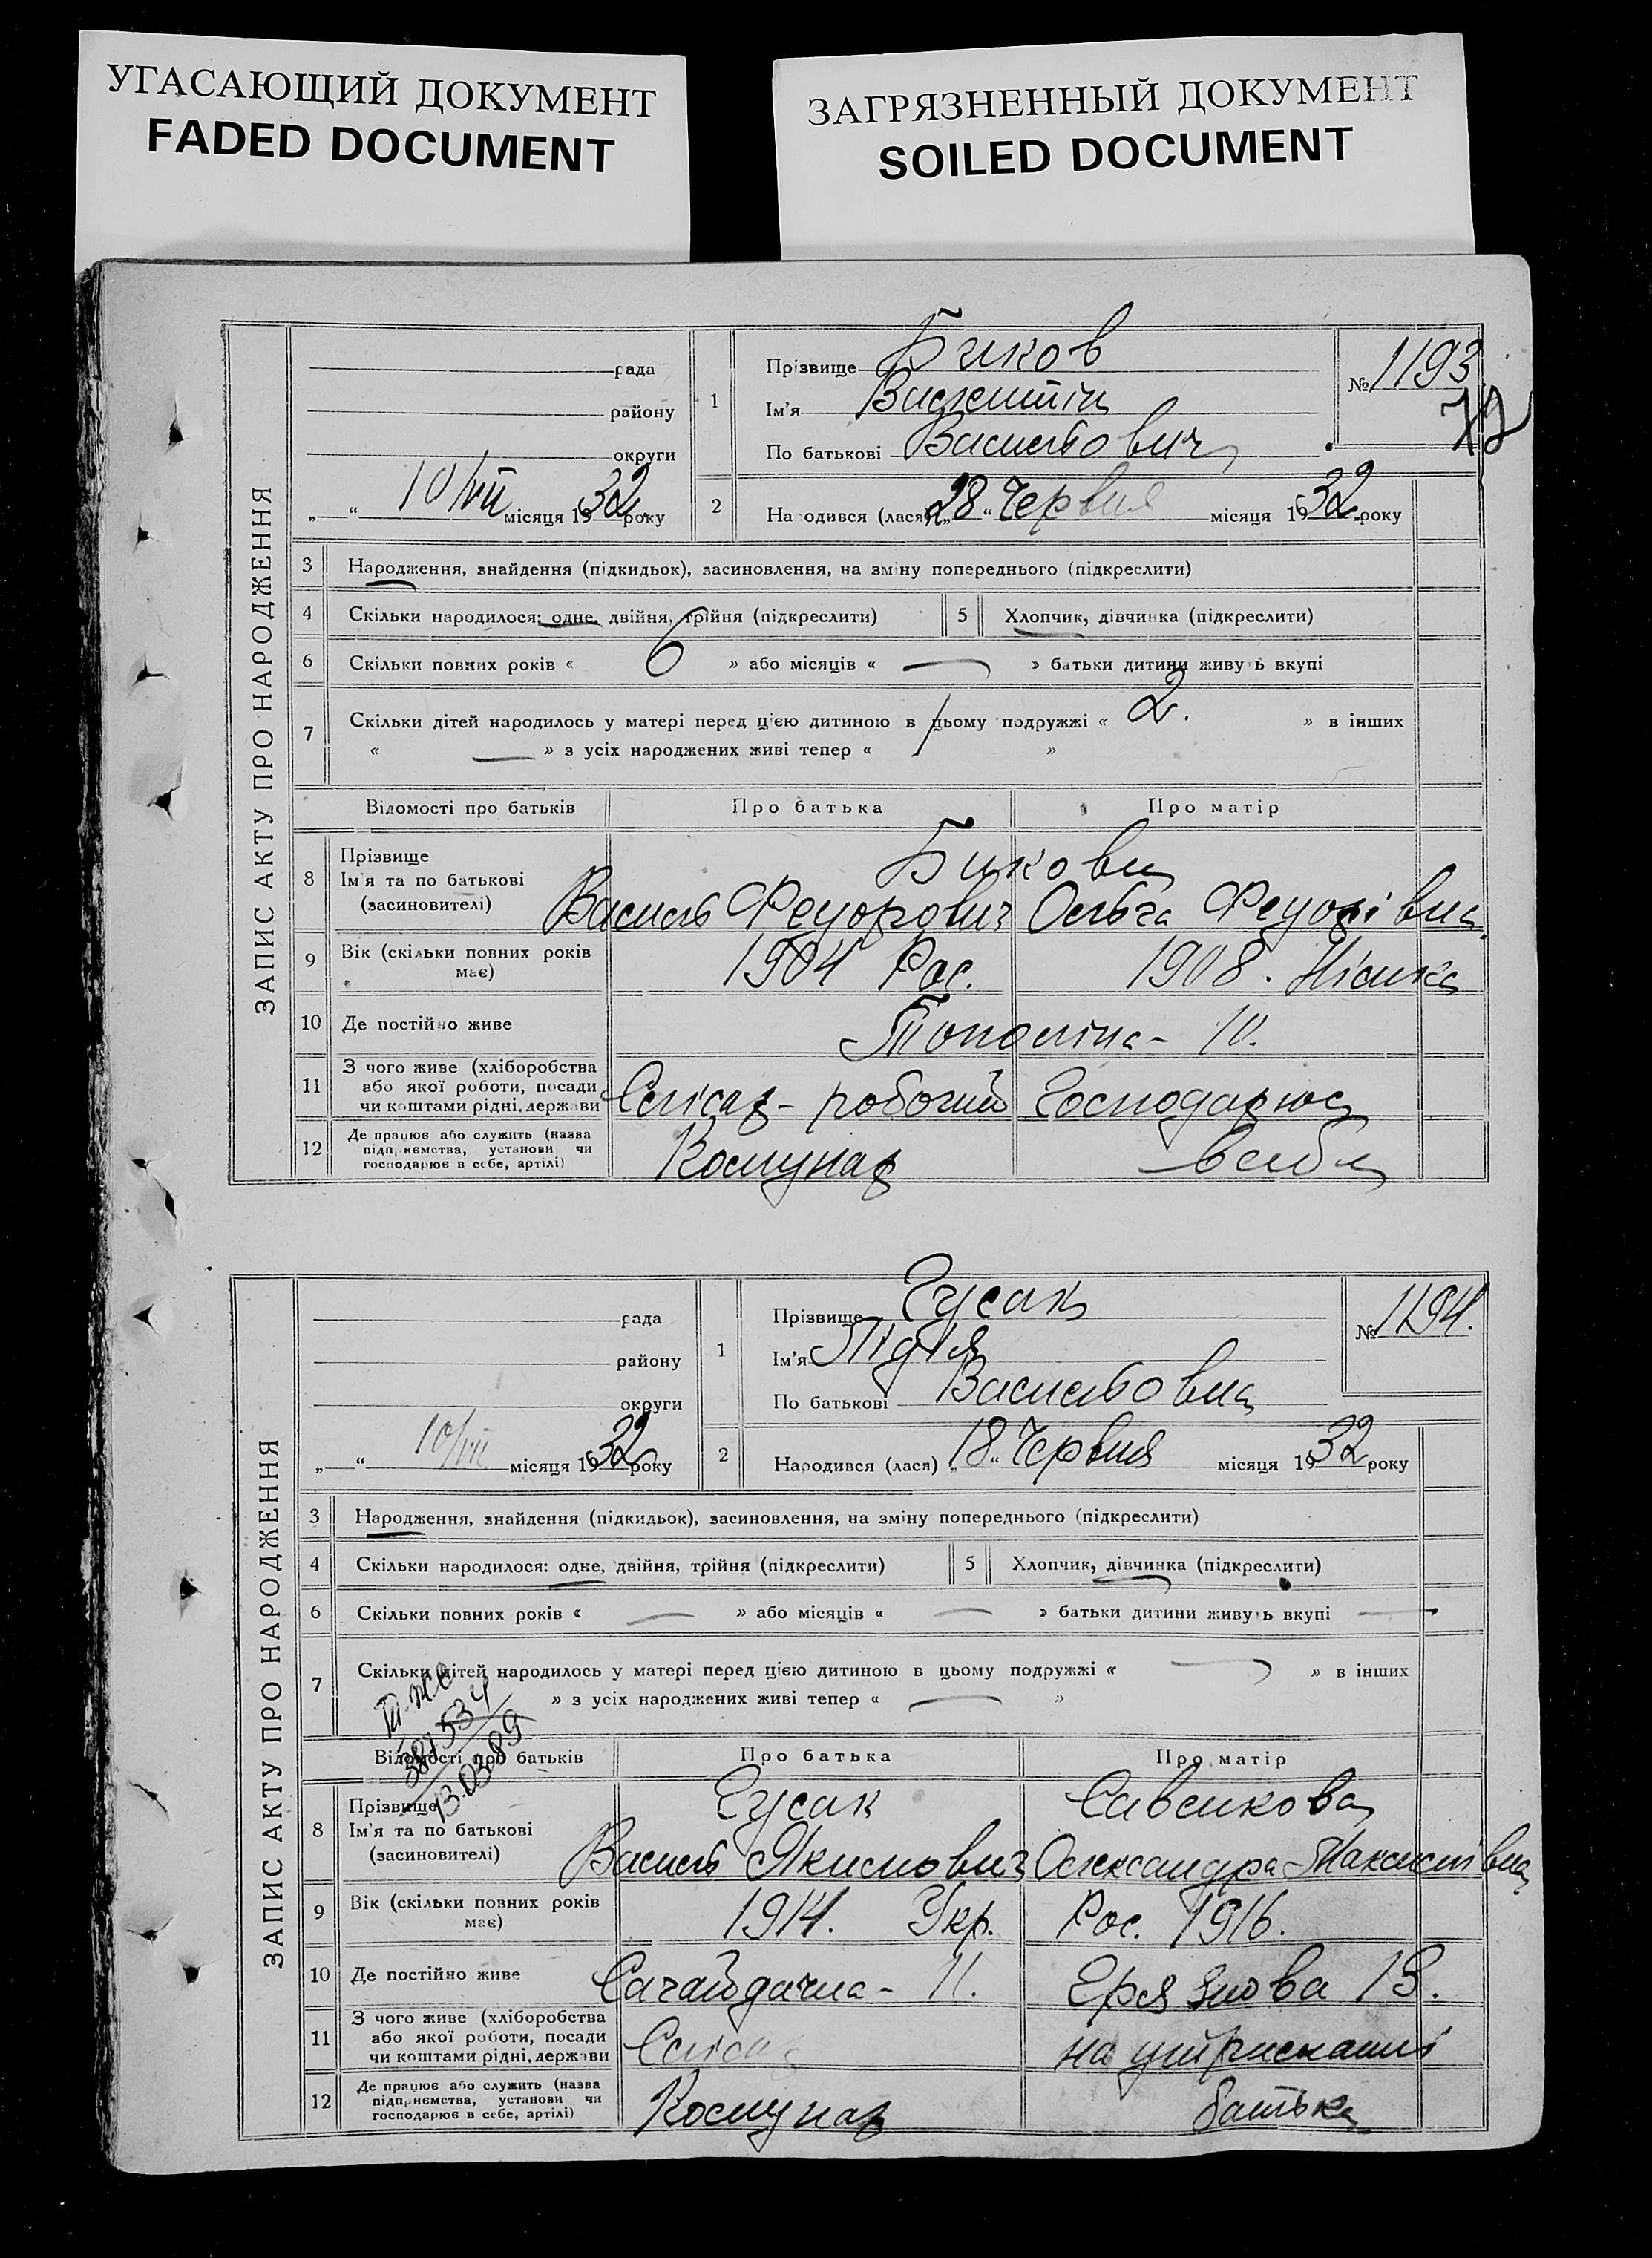 УГАСАЮЩИЙ ДОКУМЕНТ
FADED DOCUMENT
ЗАГРЯЗНЕННЫЙ ДОКУМЕНТ
SOILED DOCUMENT
ЗАПИС АКТУ ПРО НАРОДЖЕННЯ
рада
району
округи
„ “ 10/VII місяця 1932 року
1
Прізвище Биков
Ім'я Валентін
По батькові Васильович
№ 1193
72
2
Народився (лася) „28“ Червня місяця 1932 року
3 Народження, знайдення (підкидьок), засиновлення, на зміну попереднього (підкреслити)
4 Скільки народилося: одне, двійня, трійня (підкреслити) 5 Хлопчик, дівчинка (підкреслити)
6 Скільки повних років « 6 » або місяців « — » батьки дитини живуть вкупі
7 Скільки дітей народилось у матері перед цією дитиною в цьому подружжі « 2. » в інших
« — » з усіх народжених живі тепер « / »
Відомості про батьків Про батька Про матір
8 Прізвище
Ім'я та по батькові
(засиновителі)
Бикови
Василь Федорович Ольга Федорівна
9 Вік (скільки повних років
має)
1904 Рос. 1908. Німка
10 Де постійно живе Тополіна - 10.
11 З чого живе (хліборобства
або якої роботи, посади
чи коштами рідні, держави
Слісар - робочий Господарює
12 Де працює або служить (назва
підприємства, установи чи
господарює в себе, артілі)
Комунар в себе
ЗАПИС АКТУ ПРО НАРОДЖЕННЯ
рада
району
округи
„ “ 10/VII місяця 1932 року
1
Прізвище Гусак
Ім'я Лідія
По батькові Васильовна
№ 1194.
2
Народився (лася) „18“ Червня місяця 1932 року
3 Народження, знайдення (підкидьок), засиновлення, на зміну попереднього (підкреслити)
4 Скільки народилося: одне, двійня, трійня (підкреслити) 5 Хлопчик, дівчинка (підкреслити)
6 Скільки повних років « — » або місяців « — » батьки дитини живуть вкупі —
7 Скільки дітей народилось у матері перед цією дитиною в цьому подружжі « — » в інших
» з усіх народжених живі тепер « — »
13.03.89
Відомості про батьків Про батька Про матір
8 Прізвище
Ім'я та по батькові
(засиновителі)
Гусак Савенкова
Василь Якимович Олександра Максимівна
9 Вік (скільки повних років
має)
1914. Укр. Рос. 1916.
10 Де постійно живе Сагайдачна - 11. 13.
11 З чого живе (хліборобства
або якої роботи, посади
чи коштами рідні, держави
Слісар на утриманні
12 Де працює або служить (назва
підприємства, установи чи
господарює в себе, артілі)
Комунар батька